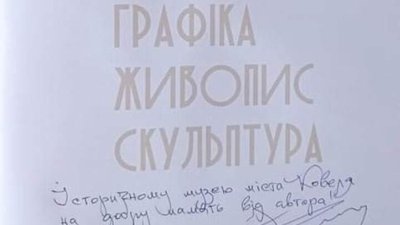 ГРАФІКА
ЖИВОПИС
СКУЛЬПТУРА
Історичному музею міста Ковеля
на добру память від автора!